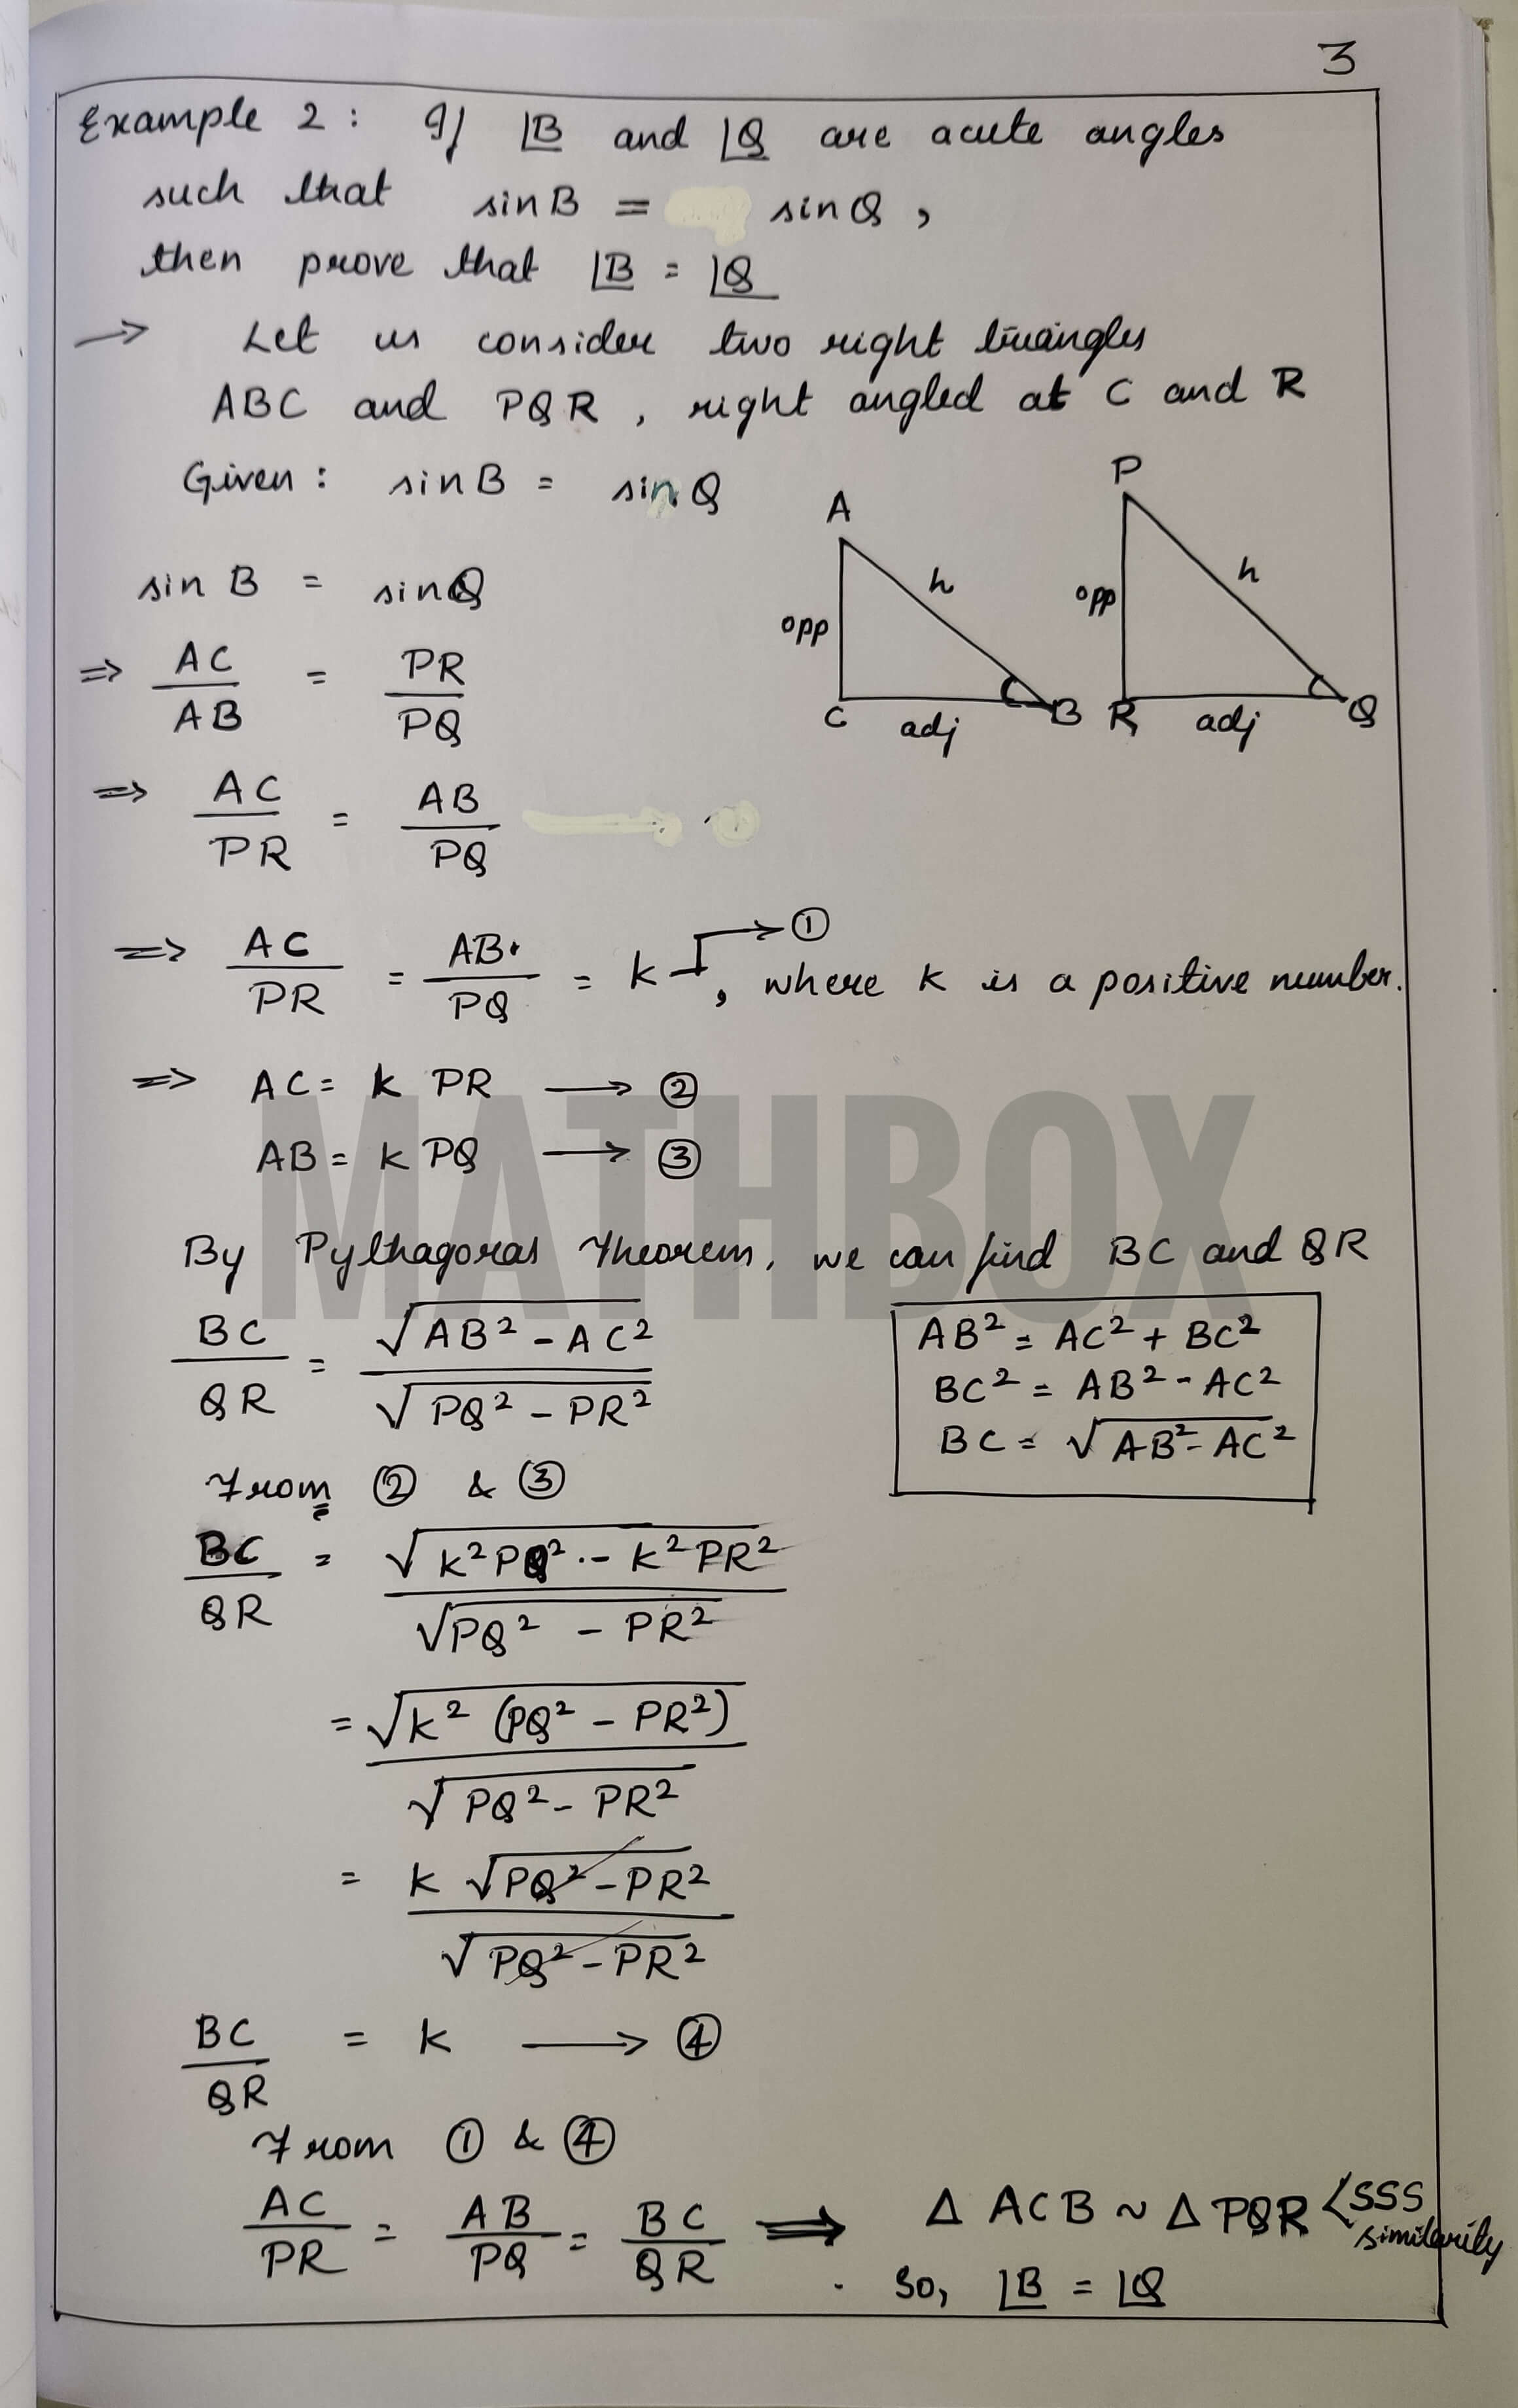 3
Example 2: If ∠B and ∠Q are acute angles
such that sin B = sin Q,
then prove that ∠B = ∠Q
→ Let us consider two right triangles
ABC and PQR, right angled at C and R
Given: sin B = sin Q
sin B = sin Q
⇒ AC/AB = PR/PQ
⇒ AC/PR = AB/PQ
A
opp
h
C
adj
B
P
opp
h
R
adj
Q
⇒ AC/PR = AB/PQ = k → ①, where k is a positive number.
⇒ AC = k PR → ②
AB = k PQ → ③
MATHBOX
By Pythagoras Theorem, we can find BC and QR
BC/QR = √(AB² - AC²) / √(PQ² - PR²)
AB² = AC² + BC²
BC² = AB² - AC²
BC = √(AB² - AC²)
From ② & ③
BC/QR = √(k²PQ² - k²PR²) / √(PQ² - PR²)
= √(k² (PQ² - PR²)) / √(PQ² - PR²)
= k √(PQ² - PR²) / √(PQ² - PR²)
BC/QR = k → ④
From ① & ④
AC/PR = AB/PQ = BC/QR ⇒ Δ ACB ~ Δ PQR < SSS similarity
So, ∠B = ∠Q